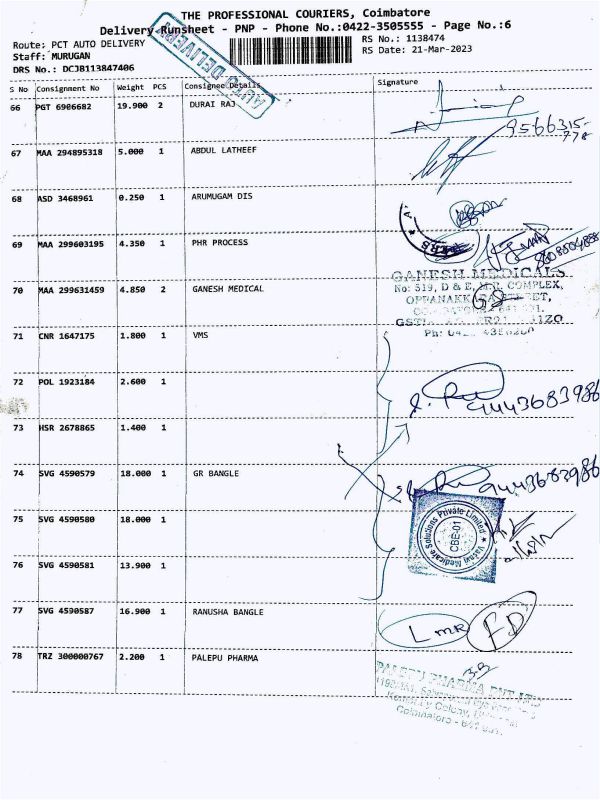 THE PROFESSIONAL COURIERS, Coimbatore
Delivery Runsheet - PNP - Phone No.:0422-3505555 - Page No.:6
Route: PCT AUTO DELIVERY
RS No.: 1138474
Staff: MURUGAN
RS Date: 21-Mar-2023
DRS No.: DCJB113847406
AUTO DELIVERY
S No Consignment No Weight PCS Consignee Details Signature
66 PGT 6906682 19.900 2 DURAI RAJ
9566315-
778
67 MAA 294895318 5.000 1 ABDUL LATHEEF
68 ASD 3468961 0.250 1 ARUMUGAM DIS
69 MAA 299603195 4.350 1 PHR PROCESS
GANESH MEDICALS
No: 519, D & E, M.R. COMPLEX,
70 MAA 299631459 4.850 2 GANESH MEDICAL
71 CNR 1647175 1.800 1 VMS
72 POL 1923184 2.600 1
9443683986
73 HSR 2678865 1.400 1
74 SVG 4590579 18.000 1 GR BANGLE
9443683986
Vasavi Medicare Solutions Private Limited
CBE-01
75 SVG 4590580 18.000 1
76 SVG 4590581 13.900 1
77 SVG 4590587 16.900 1 RANUSHA BANGLE
LMR
FD
78 TRZ 300000767 2.200 1 PALEPU PHARMA
PALEPU PHARMA PVT LTD